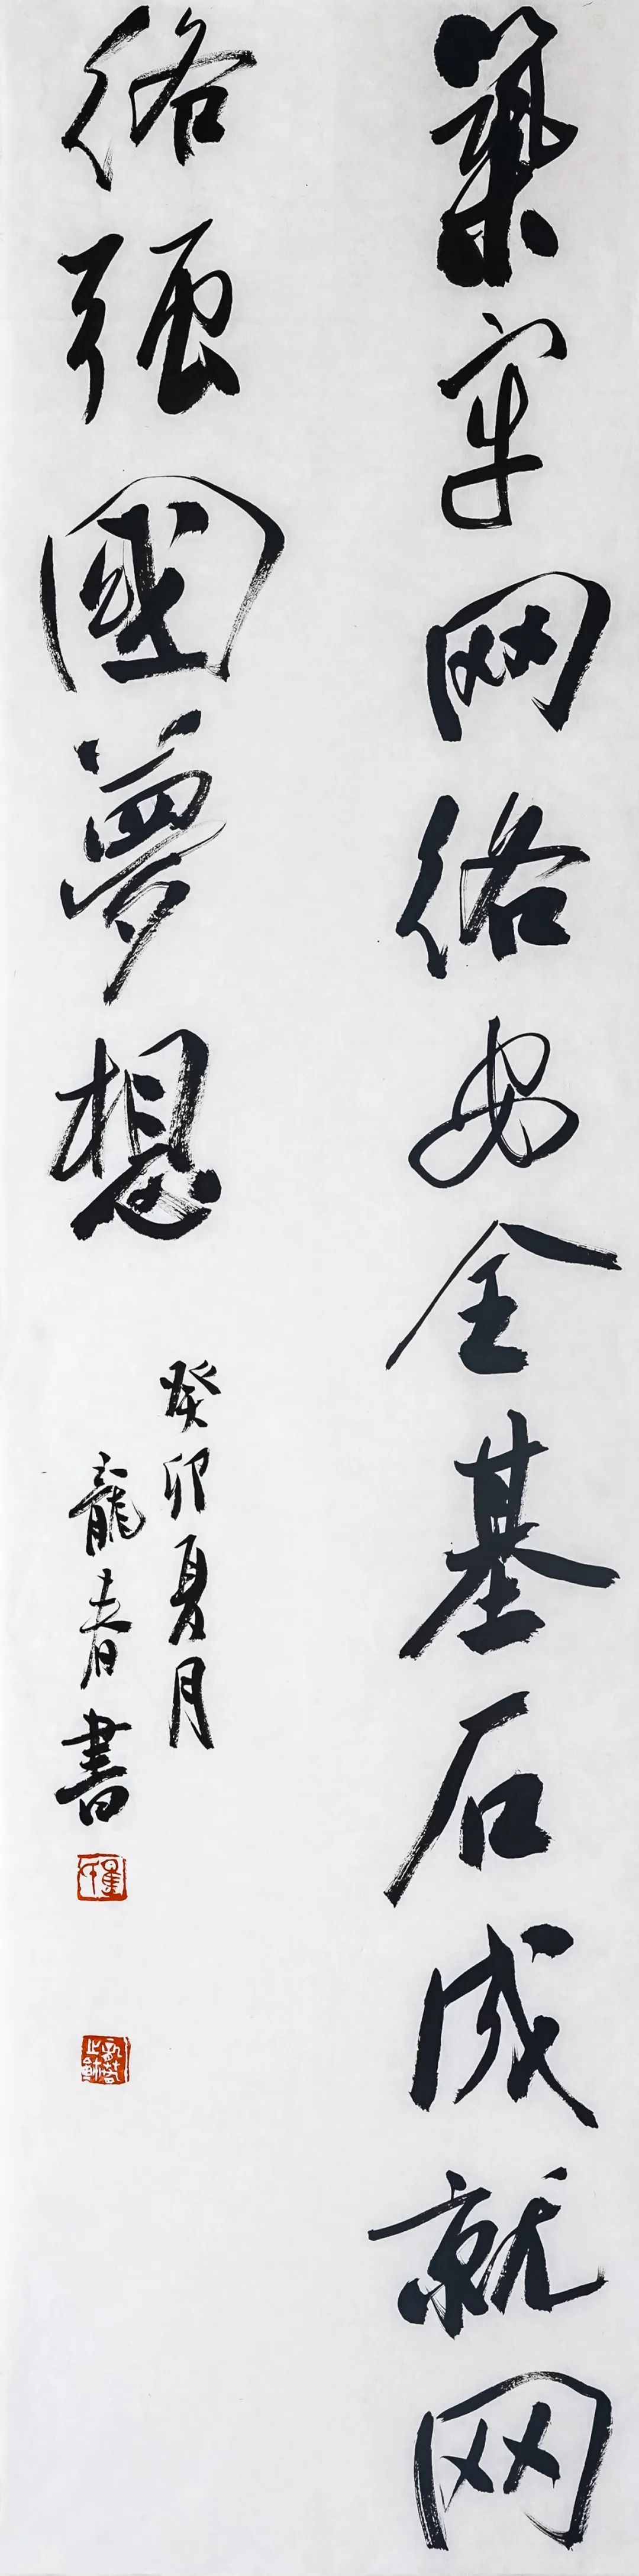 築牢网络安全基石成就网
络强國夢想
癸卯夏月
龍春書